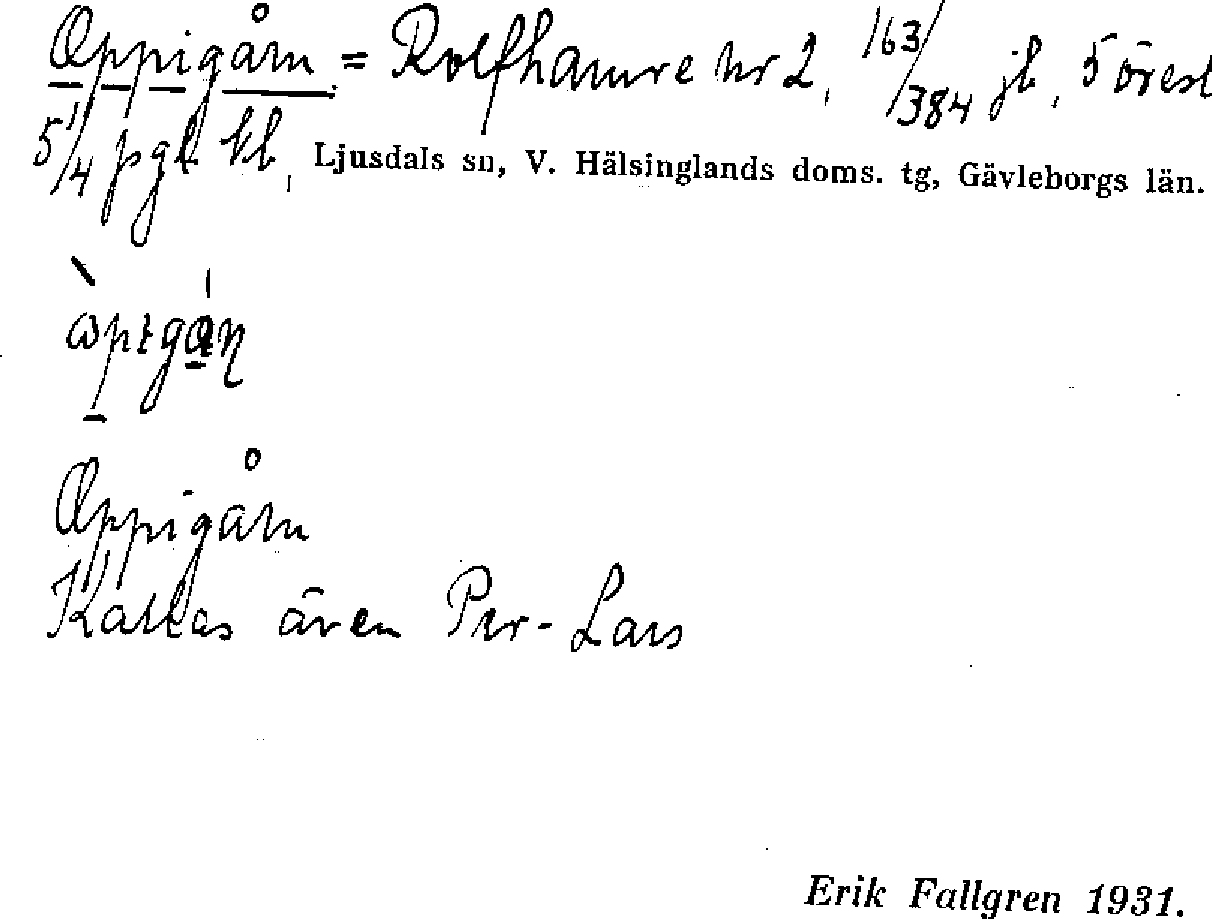 Oppigåln = Rolfhamre nr 2, 163/384 jb, 5 öresl
5 1/4 pgl kb, Ljusdals sn, V. Hälsinglands doms. tg, Gävleborgs län.
Oppigåln
Kallas även Per-Lars
Erik Fallgren 1931.